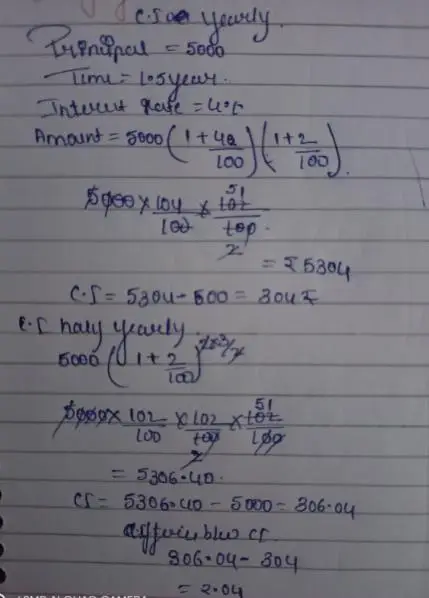 C.S yearly.
Principal = 5000
Time = 1.5 year.
Interest Rate = 4%
Amount = 5000 (1 + 4/100) (1 + 2/100).
5000 × 104/100 × 102/100. 51 2
= ₹ 5304
C.S = 5304 - 500 = 304 ₹
C.S half yearly.
5000 (1 + 2/100) 2×3/2
5000 × 102/100 × 102/100 × 102/100 51 2
= 5306.40.
CS = 5306.40 - 5000 = 306.04
306.04 - 304
= 2.04